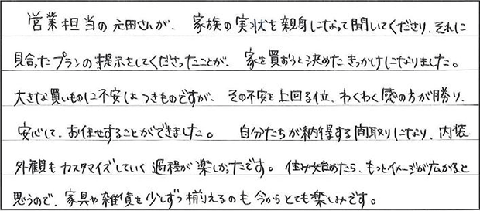 営業担当の元田さんが、家族の実状も親身になって聞いてくださり、それに
見合ったプランの提示をしてくださったことが、家を買おうと決めたきっかけになりました。
大きな買いものに不安はつきものですが、その不安を上回る位、わくわく感の方が勝り、
安心して、お任せすることができました。 自分たちが納得する間取りになり、内装
外観もカスタマイズしていく過程が楽しかったです。住み始めたら、もっとイメージが広がると
思うので、家具や雑貨を少しずつ揃えるのも今からとても楽しみです。